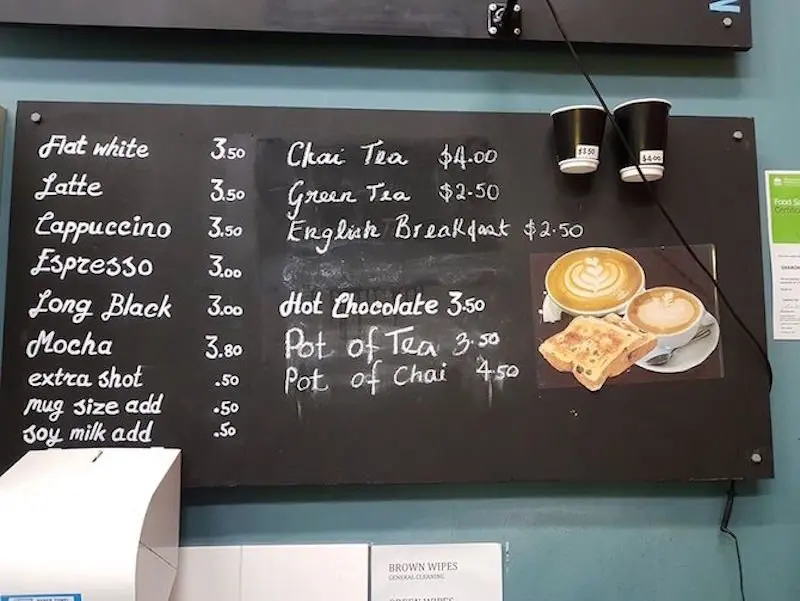 Flat white 3.50
Latte 3.50
Cappuccino 3.50
Espresso 3.00
Long Black 3.00
Mocha 3.80
extra shot .50
mug size add .50
soy milk add .50
Chai Tea $4.00
Green Tea $2.50
English Breakfast $2.50
Hot Chocolate 3.50
Pot of Tea 3.50
Pot of Chai 4.50
$3.50
$4.00
Food
BROWN WIPES
GENERAL CLEANING
GREEN WIPES